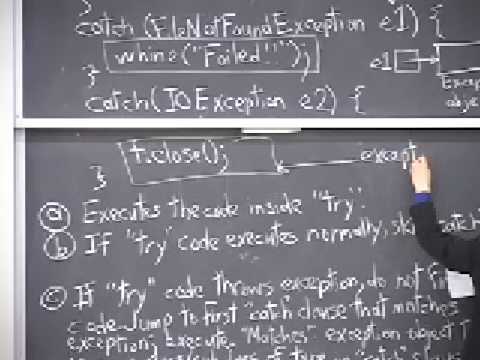 }
catch (FileNotFoundException e1) {
whine("Failed!");
}
e1
catch(IOException e2) {
Excep
objec
f.close();
except
}
(a) Executes the code inside "try".
(b) If "try" code executes normally, skip "catch
(c) If "try" code throws exception, do not fi
code. Jump to first "catch clause that matches
exception; execute. "Matches": exception object